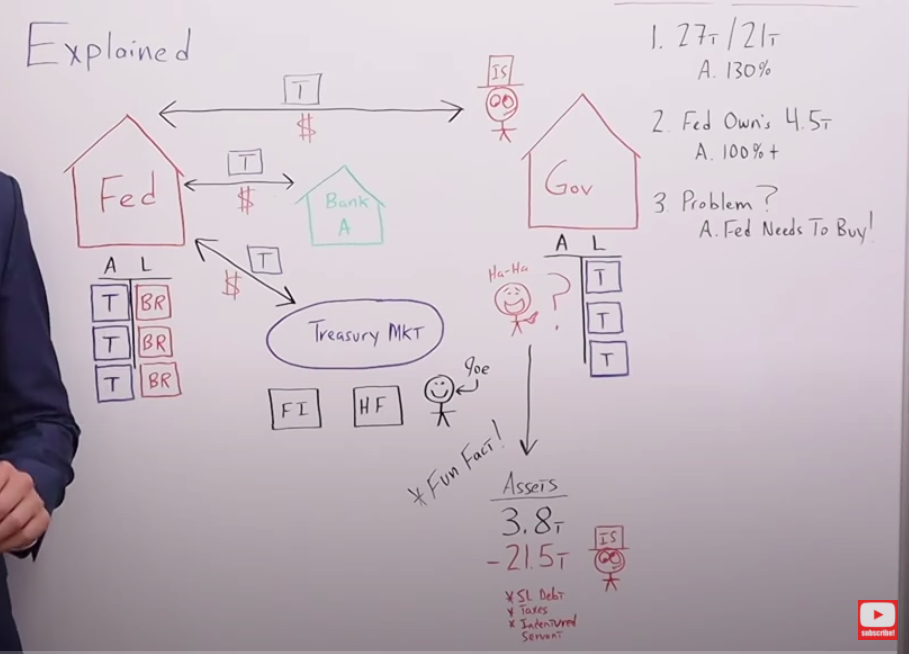 Explained
T
$
IS
Fed
Gov
T
$
Bank
A
T
$
A L
T BR
T BR
T BR
Treasury MKT
FI
HF
Joe
A L
T
T
T
Ha-Ha
?
* Fun Fact!
Assets
3.8T
-21.5T
IS
* SL Debt
* Taxes
* Intentured
Servant
1. 27T/21T
A. 130%
2. Fed Own's 4.5T
A. 100%+
3. Problem?
A. Fed Needs To Buy!
subscribe!